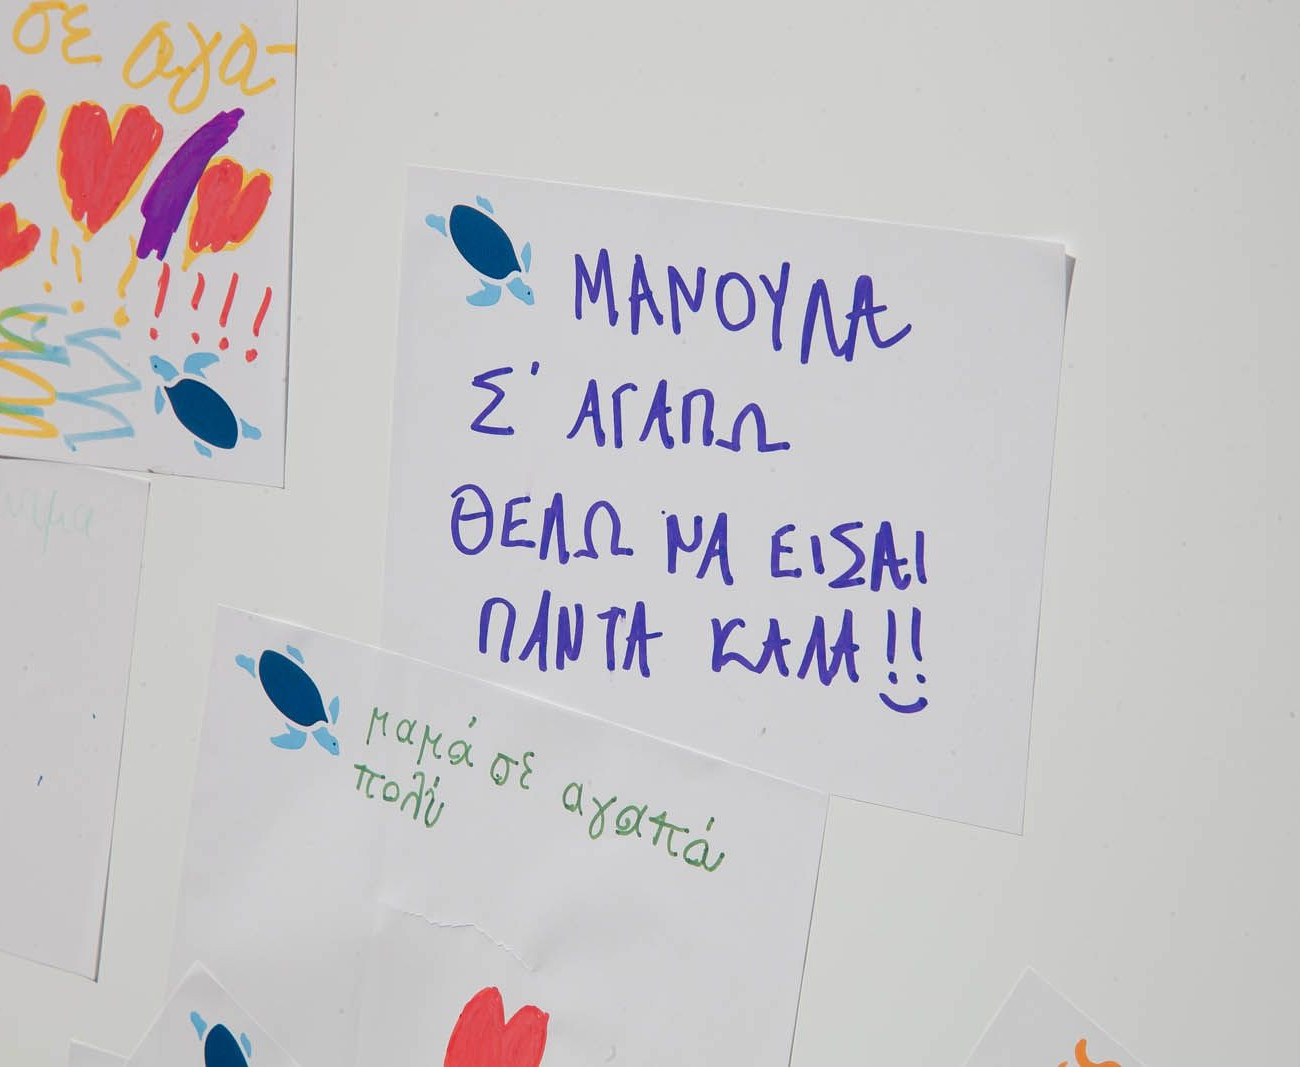 σε αγα-
!!! !!!!
ΜΑΝΟΥΛΑ
Σ' ΑΓΑΠΩ
ΘΕΛΩ ΝΑ ΕΙΣΑΙ
ΠΑΝΤΑ ΚΑΛΑ!!
μαμά σε αγαπά
πολύ